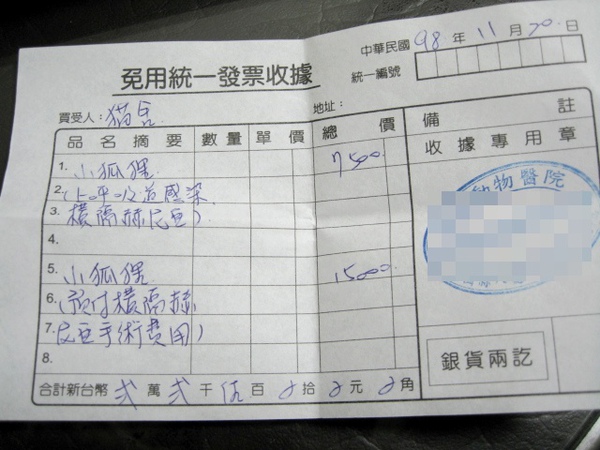 中華民國 98 年 11 月 20 日
免用統一發票收據
統一編號
買受人：貓皂
地址：
品名摘要 數量 單價 總價 備註
1. 小狐狸 7500
收據專用章
2. (上呼吸道感染
動物醫院
3. 橫隔赫尼亞)
4.
5. 小狐狸 15000
6. (預付橫隔赫
7. 尼亞手術費用)
銀貨兩訖
8.
合計新台幣 貳 萬 貳 千 伍 百 0 拾 0 元 0 角